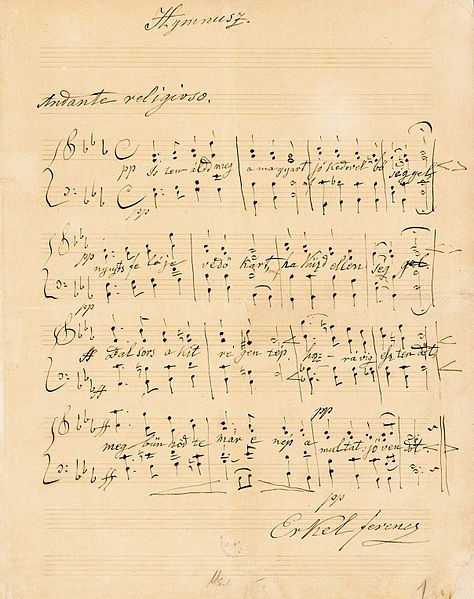 Hymnusz.
Andante religioso.
pp Isten áldd meg a magyart jó kedvvel bő séggel
pp
pp nyujts feléje védő kart, ha küzd ellen ség gel
pp
ff Bal sors a kit régen tép hoz-rá víg esz ten dőt
ff
ff meg bűn hőd te már e nép a pp multat jöven dőt
ff
pp
Erkel ferencz
Ms. 1.
1